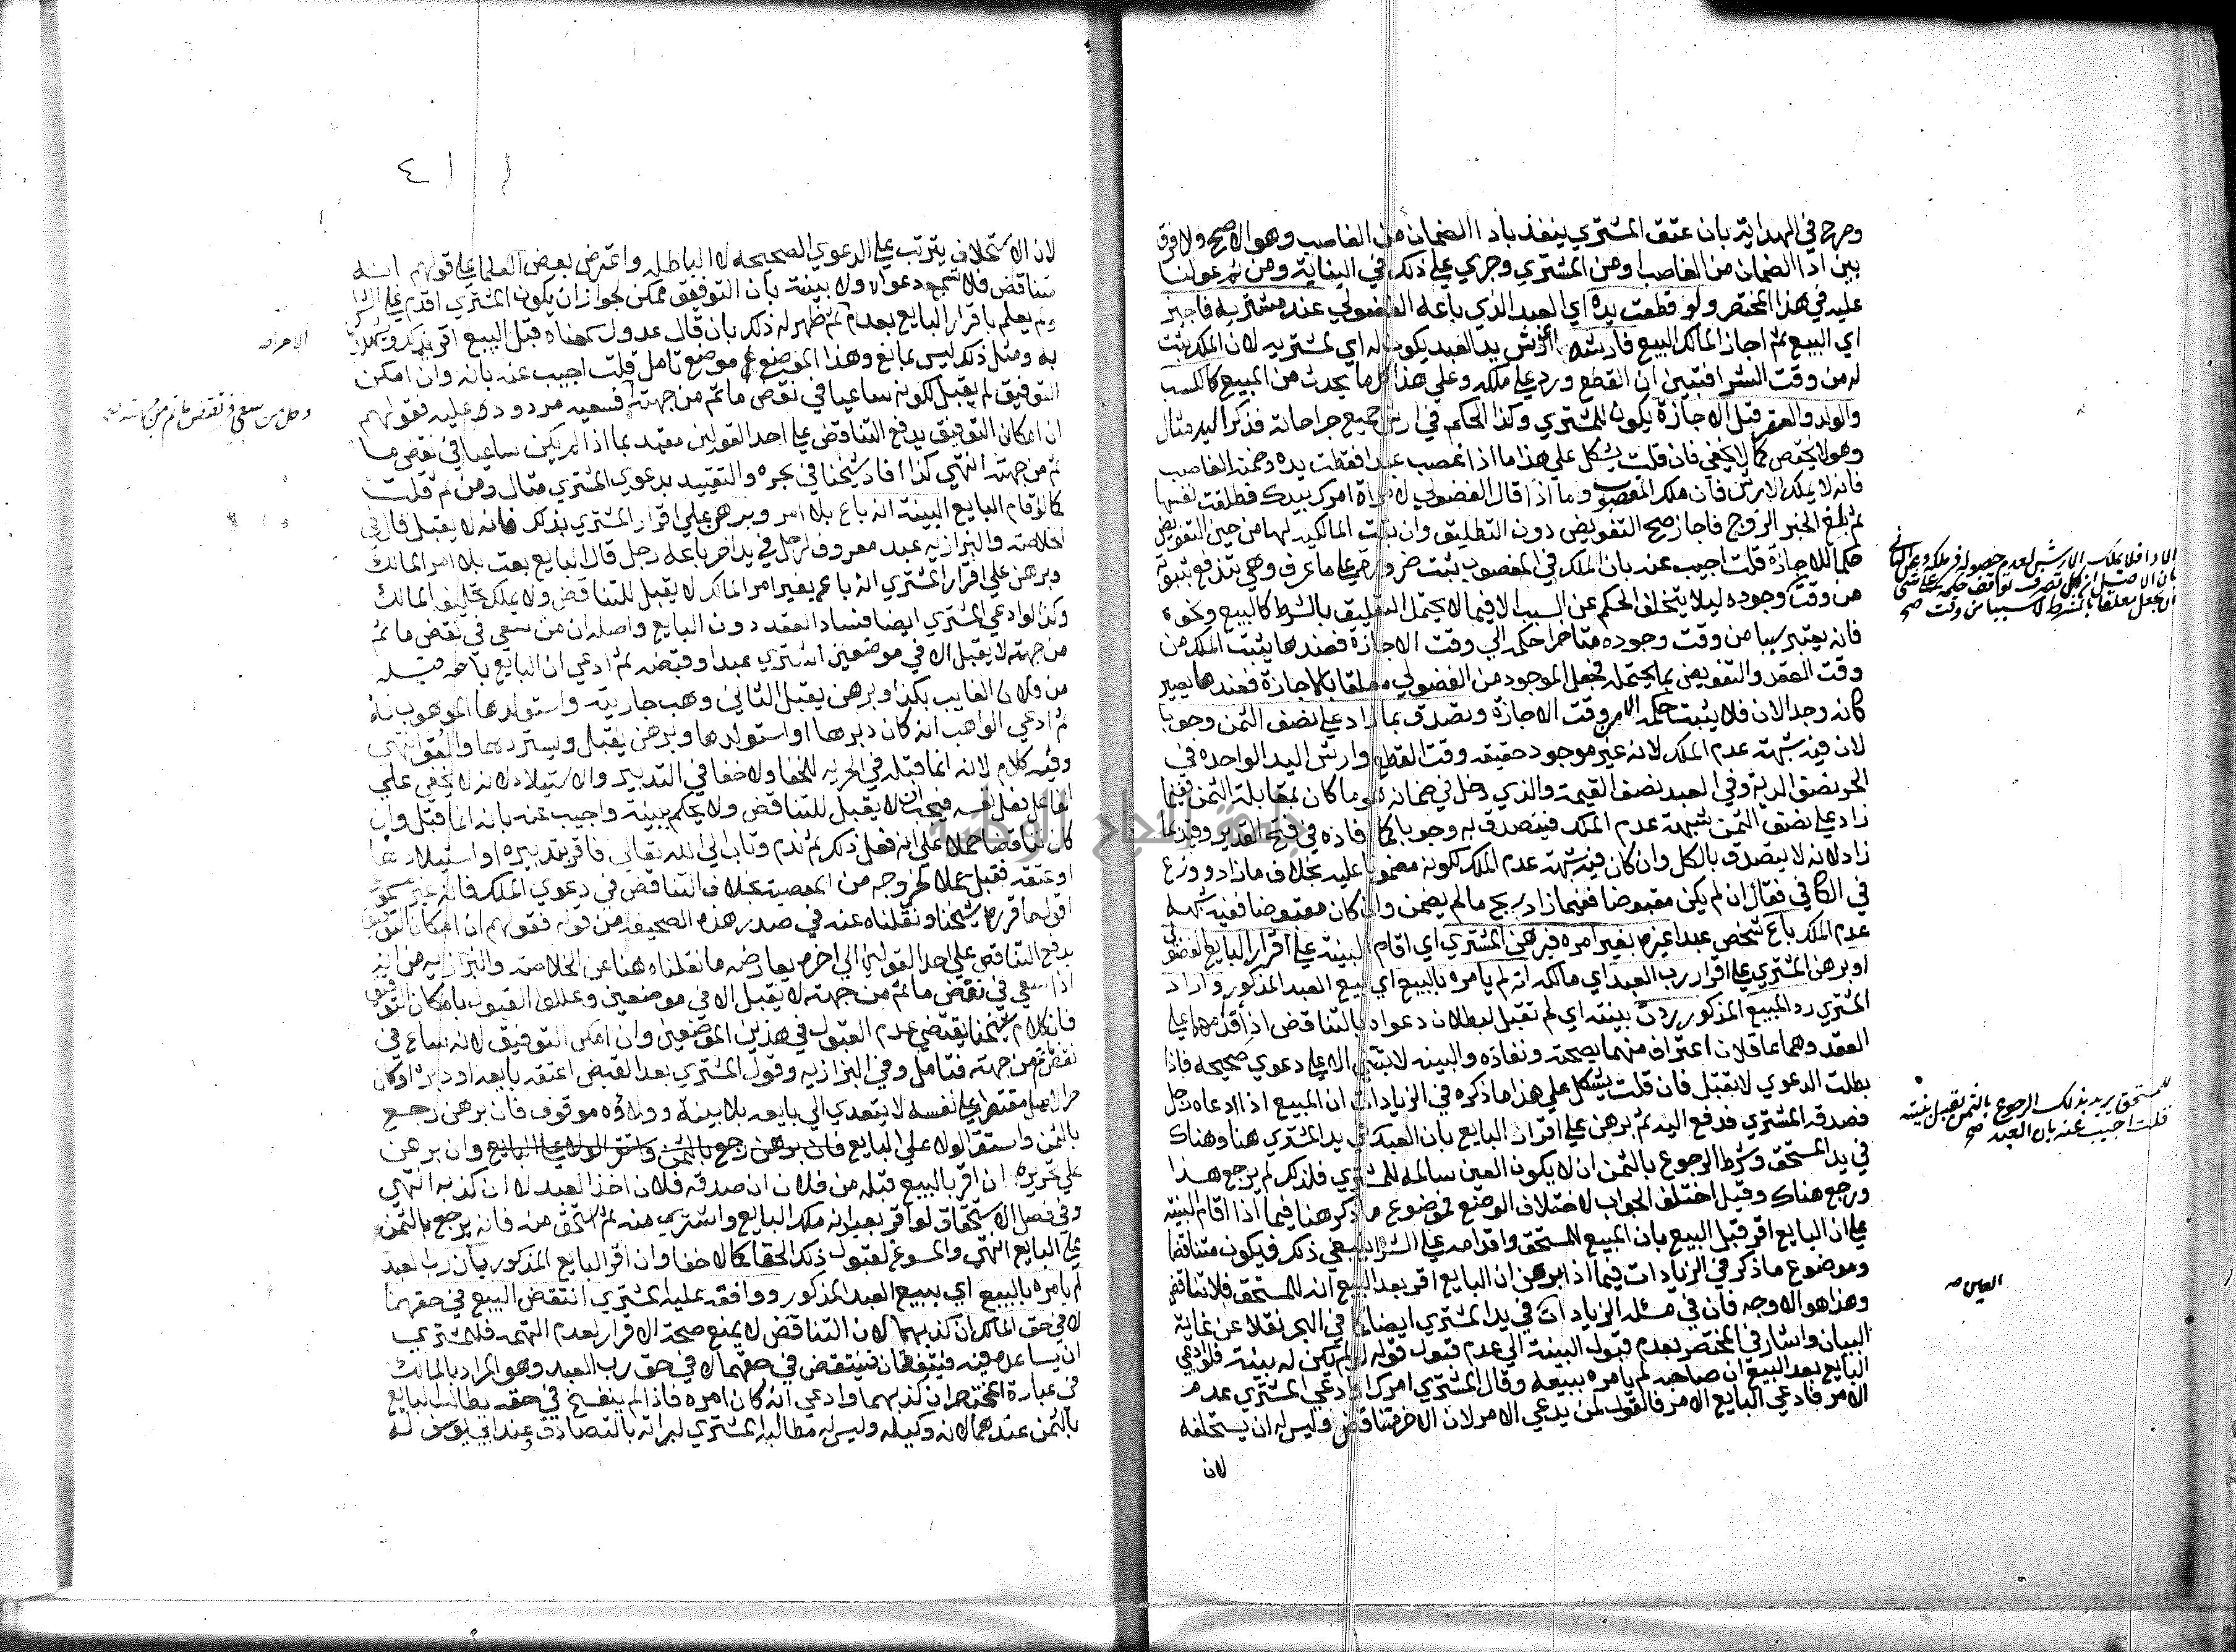 وصرح في الهداية بان عتق المشتري ينفذ باداء الضمان من الغاصب وهو الاصح ولا فرق
بين اداء الضمان من الغاصب او من المشتري وجري علي ذلك في البناية ومن ثم عولنا
عليه في هذا المختصر ولو قطعت يده اي العبد الذي باعه الفضولي عند مشتريه فاجيز
اي البيع ثم اجاز المالك البيع فارشه ارش يد العبد يكون له اي لمشتريه لان الملك يثبت
له من وقت الشرا فتبين ان القطع ورد علي ملكه وعلي هذا كل ما يحدث من المبيع كالكسب
والولد والعقر قبل الاجازة يكون للمشتري وكذا الحكم في ارش جميع جراحاته فذكر اليد مثال
وهو لا يخص كما لا يخفي فان قلت يشكل علي هذا ما اذا غصب عبدا فقطعت يده وضمنه الغاصب
فانه لا يملك الارش فان ملك المغصوب وما اذا قال الفضولي لامراة امرك بيدك فطلقت نفسها
ثم بلغ الخبر الزوج فاجاز صح التفويض دون التطليق وان ثبت المالكيه لها من حين التفويض
حكما للاجازة قلت اجيب عنه بان الملك في المغصوب ثبت ضرورة علي ما عرف وهي تندفع بثبوته
من وقت وجوده ليلا يتخلف الحكم عن السبب الا فيما لا يحتمل التعليق بالشرط كالبيع ونحوه
فانه يعتبر سببا من وقت وجوده متاخرا حكمه الي وقت الاجازة فعندها يثبت الملك من
وقت العقد والتفويض بما يحتمله فجعل الموجود من الفضولي معلقا بالاجازة فعندها يصير
كانه وجد الان فلا يثبت حكمه الا من وقت الاجازة وتصدق بما زاد علي نصف الثمن وجوبا
لان فيه شبهة عدم الملك لانه غير موجود حقيقه وقت القطع وارش اليد الواحده في
الحر نصف الدية وفي العبد نصف القيمة والذي دخل في ضمانه هو ما كان بمقابلة الثمن ففيما
زاد علي نصف الثمن شبهة عدم الملك فيتصدق به وجوبا كما افاده في فتح القدير وقيد بما
زاد لانه لا يتصدق بالكل وان كان فيه شبهة عدم الملك لكونه مضمونا عليه بخلاف ما زاد ووزع
في الكافي فقال ان لم يكن مقبوضا ففيما زاد ربح مالم يضمن وان كان مقبوضا ففيه شبهة
عدم الملك باع شخص عبد غيره بغير امره فبرهن المشتري اي اقام البينة علي اقرار البايع الفضولي
او برهن المشتري علي اقرار رب العبد اي مالكه انه لم يامره بالبيع اي ببيع العبد المذكور واراد
المشتري رد المبيع المذكور ردت بينته اي لم تقبل لبطلان دعواه بالتناقض اذ اقدامهما علي
العقد وهما عاقلان اعتراف منهما بصحته ونفاذه والبينه لا تبتني الا علي دعوي صحيحه فاذا
بطلت الدعوي لا تقبل فان قلت يشكل علي هذا ما ذكره في الزيادات ان المبيع اذا ادعاه رجل
فصدقه المشتري فدفع اليه ثم برهن علي اقرار البايع بان العبد في يد المشتري هنا وهناك
في يد المستحق وشرط الرجوع بالثمن ان لا يكون العين سالمه للمشتري فلذلك لم يرجع هنا
ورجع هناك وقيل اختلف الجواب لاختلاف الوضع فموضوع ما ذكر هنا فيما اذا اقام البينه
علي ان البايع اقر قبل البيع بان المبيع للمستحق واقدامه علي الشرا ينفي ذلك فيكون متناقضا
وموضوع ما ذكر في الزيادات فيما اذا برهن ان البايع اقر بعد البيع انه للمستحق فلا تناقض
وهذا هو الاوجه فان في مسئلة الزيادات في يد المشتري ايضا كما في البحر نقلا عن غاية
البيان واشار في المختصر بعدم قبول البينة الي عدم قبول قوله لو لم يكن له بينة فلو ادعي
البايع بعد البيع ان صاحبه لم يامره ببيعه وقال المشتري امرك او ادعي المشتري عدم
الامر فادعي البايع الامر فالقول لمن يدعي الامر لان الاخر متناقض وليس له ان يستحلفه
لان
الاداء فلا يملك الارش لعدم حصوله في ملكه وعن الثاني
بان الاصل ان كل تصرف توقف حكمه علي شي
ان يجعل معلقا بالشرط لا سببا من وقت صح
للمستحق يريد بذلك الرجوع بالثمن تقبل بينته
قلت اجيب عنه بان العبد صح
العين صح
٤١١
لان الاستحلاف يترتب علي الدعوي الصحيحه لا الباطله واعترض بعض العلما علي قولهم انه
تناقض فلا تسمع دعواه ولا بينته بان التوفيق ممكن لجواز ان يكون المشتري اقدم علي الشرا
ولم يعلم باقرار البايع بعدم ثم ظهر له ذلك بان قال عدول سمعناه قبل البيع اقر بذلك
به ومثل ذلك ليس بمانع وهذا الموضوع موضع تامل قلت اجيب عنه بانه وان امكن
التوفيق لم يقبل لكونه ساعيا في نقض ما تم من جهته فسعيه مردود عليه فقولهم
ان امكان التوفيق يدفع التناقض علي احد القولين مقيد بما اذا لم يكن ساعيا في نقض ما
تم من جهته انتهي كذا افاد شيخنا في بحره والتقييد بدعوي المشتري مثال ومن ثم قلت
كما لو اقام البايع البينة انه باع بلا امر وبرهن علي اقرار المشتري بذلك فانه لا يقبل قال في
الخلاصه والبزازيه عبد معروف لرجل في يد اخر باعه رجل قال البايع بعت بلا امر المالك
وبرهن علي اقرار المشتري انه باعه بغير امر المالك لا يقبل للتناقض ولا يملك تحليف المالك
وكذا لو ادعي المشتري ايضا فساد العقد دون البايع واصله ان من سعي في نقض ما تم
من جهته لا يقبل الا في موضعين اشتري عبدا وقبضه ثم ادعي ان البايع باعه قبله
من فلان الغايب بكذا وبرهن يقبل الثاني وهب جاريته واستولدها الموهوب له
ثم ادعي الواهب انه كان دبرها او استولدها وبرهن يقبل ويستردها والعقر انتهي
وفيه كلام لانه انما قبله في الحرية للخفا ولا خفا في التدبير والاستيلاد لانه لا يخفي علي
الفاعل فعل نفسه فينبغي ان لا يقبل للتناقض ولا يحكم ببينة واجيب عنه بانه انما قبل وان
كان تناقضا حملا علي انه فعل ذلك ثم ندم وتاب الي الله تعالي فاقر بتدبيره او استيلادها
او عتقه فقبل حملا لخروجه من المعصية بخلاف التناقض في دعوي الملك فانه غير
اقول ما قرره شيخنا ونقلناه عنه في صدر هذه الصحيفه من قوله فقولهم ان امكان التوفيق
يدفع التناقض علي احد القولين الي اخره يعارضه ما نقلناه هنا عن الخلاصه والبزازيه من انه
اذا سعي في نقض ما تم من جهته لا يقبل الا في موضعين وعللوا القبول بامكان التوفيق
فان كلام شيخنا يقتضي عدم القبول في هذين الموضعين وان امكن التوفيق لانه ساع في
نقض ما تم من جهته فتامل وفي البزازيه وقول المشتري بعد القبض اعتقه بايعه او دبره او كان
حر الاصل مقتصر علي نفسه لا يتعدي الي بايعه بلا بينة وولاؤه موقوف فان برهن رجع
بالثمن واستقر الولا علي البايع فان برهن رجع بالثمن واستقر الولا علي البايع وان برهن
علي تحريره ان اقر بالبيع قبله من فلان ان صدقه فلان اخذ العبد لا ان كذبه انتهي
وفي فصل الاستحقاق لو اقر بعبد انه ملك البايع واشتري منه ثم استحق منه فانه يرجع بالثمن
علي البايع انتهي والمسوغ لقبول ذلك الخفا كما لا خفا وان اقر البايع المذكور بان رب العبد
لم يامره بالبيع اي ببيع العبد المذكور ووافقه عليه المشتري انتقض البيع في حقهما
لا في حق المالك ان كذبهما لان التناقض لا يمنع صحة الاقرار لعدم التهمه فللمشتري
ان يساعده فيه فيتفقان فينتقض في حقهما لا في حق رب العبد وهو المراد بالمالك
في عبارة المختصر ان كذبهما وادعي انه كان امره فاذا لم ينفسخ في حقه يطالب البايع
بالثمن عندهما لانه وكيله وليس له مطالبة المشتري لبراته بالتصادق وعند ابي يوسف له
الامر صح
وكل من سعي في نقض ما تم من جهته